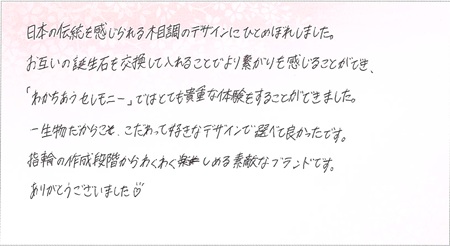 日本の伝統を感じられる木目調のデザインにひとめぼれしました。
お互いの誕生石を交換して入れることでより繋がりを感じることができ、
「わかちあうセレモニー」ではとても貴重な体験をすることができました。
一生物だからこそ、こだわって好きなデザインで選べて良かったです。
指輪の作成段階からわくわく楽しめる素敵なブランドです。
ありがとうございました♡